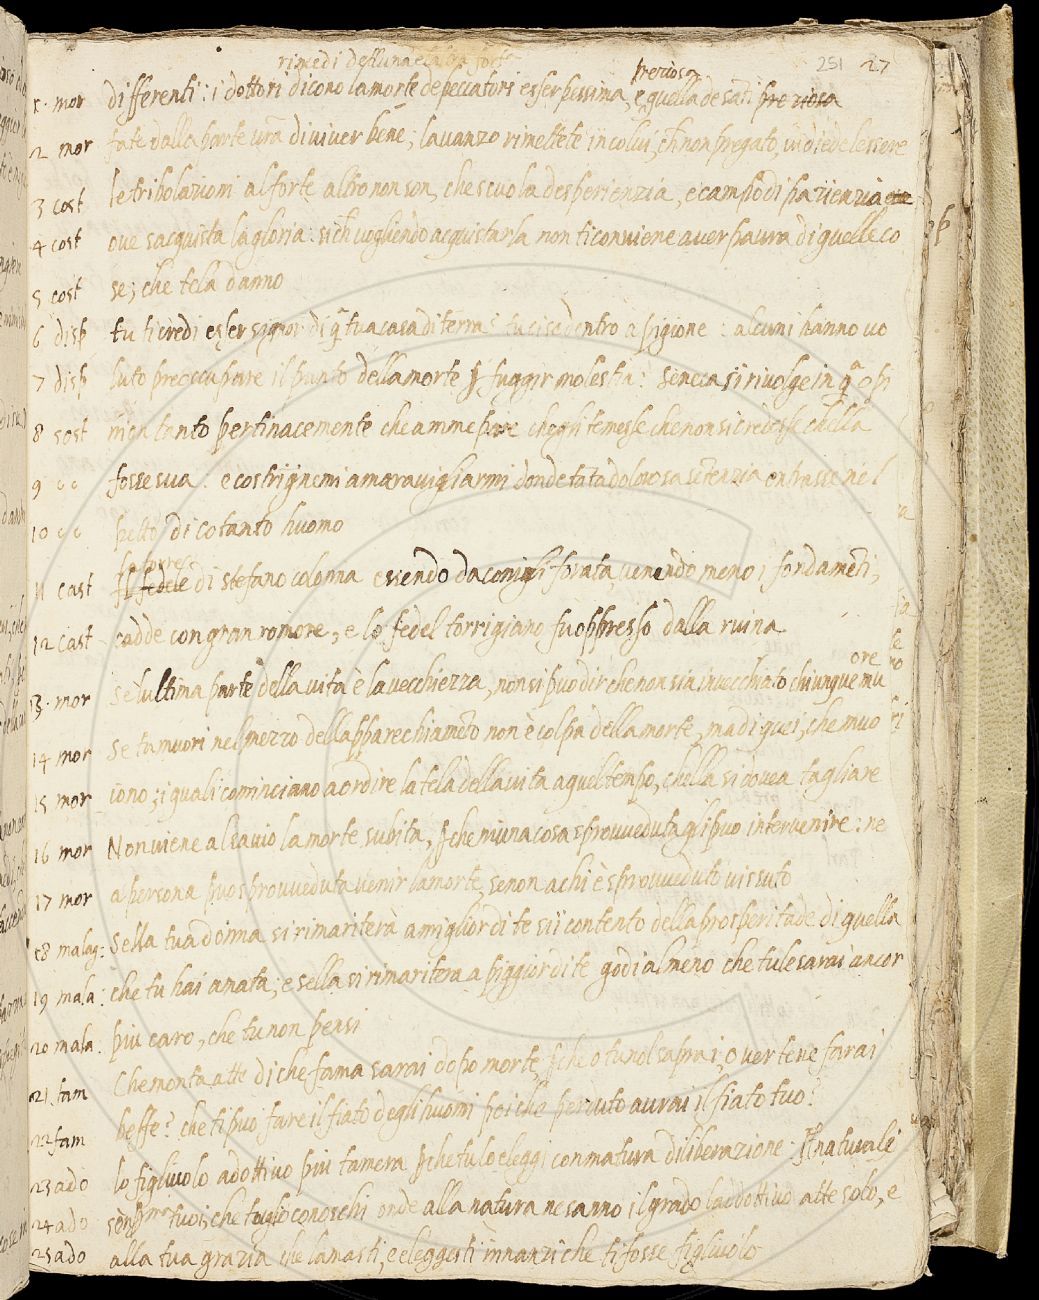 rimedi dell una et l altra fort
251 27
preziosa
1. mor differenti: i dottori dicono la morte de peccatori esser pessima, e quella de sāti preziosa
2 mor fate dalla parte vr̄a di viver bene; lavanzo rimettete in colui, ch̄ non pregato, vi diede lessere
3 cost le tribolazioni al forte altro non son, che scuola desperienzia, e campo di pazienzia
4 cost ove sacquista la gloria: sich̄ vogliendo acquistarla non ti conviene aver paura di quelle co
5 cost se, che tela danno
6 disp tu ti credi esser signor di q̄ tua casa di terra? tu ci se dentro a pigione: alcuni hanno vo
7 disp luto preoccupare il punto della morte ꝑ fuggir molestia: Seneca si rivolge in qa opi
8 sost nion tanto pertinacemente che amme pare che gli temesse che non si credesse chella
9 " " fosse sua: e costrignemi a maravigliarmi donde tāta dolorosa sētenzia entrasse nel
10 " " petto di cotanto huomo
la torre
11 cast Il fedele di stefano colonna essendo da conigli forata, venendo meno i fondamēti,
12 cast cadde con gran romore, e lo fedel torrigiano fu oppresso dalla ruina
ore
13. mor se lultima parte della vita è la vecchiezza, non si puo dir che non sia invecchiato chiunque mu
14 mor Se tu muori nel mezzo dellapparechiamēto non è colpa della morte, ma di quei, che muo
15 mor iono; i quali cominciano a ordire la tela della vita a quel tempo, chella si dovea tagliare
16 mor Non viene al savio la morte subita, ꝑche niuna cosa sprovveduta gli puo intervenire: ne
17 mor a persona puo sprovveduta venir la morte, se non a chi è sprovveduto vissuto
18 malag: Sella tua donna si rimariterà a miglior di te sii contento della prosperitade di quella
19 mala: che tu hai amata; e sella si rimariterà a piggior di te godi almeno che tu le sarai ancor
20 mala: piu caro, che tu non pensi
21 fam Che monta atte di che fama sarai dopo morte, ꝑche o tu nol saprai, o ver te ne farai
22 fam beffe? che ti puo fare il fiato degli huomi poi che perduto avrai il fiato tuo?
23 ado lo figliuolo adottivo piu tamera ꝑche tu lo eleggi con matura diliberazione: il naturale
24 ado tuoi, che tu glio conoschi onde alla natura ne sanno il grado laddottivo atte solo, e
25 ado alla tua grazia che lamasti, e eleggesti innanzi che ti fosse figliuolo